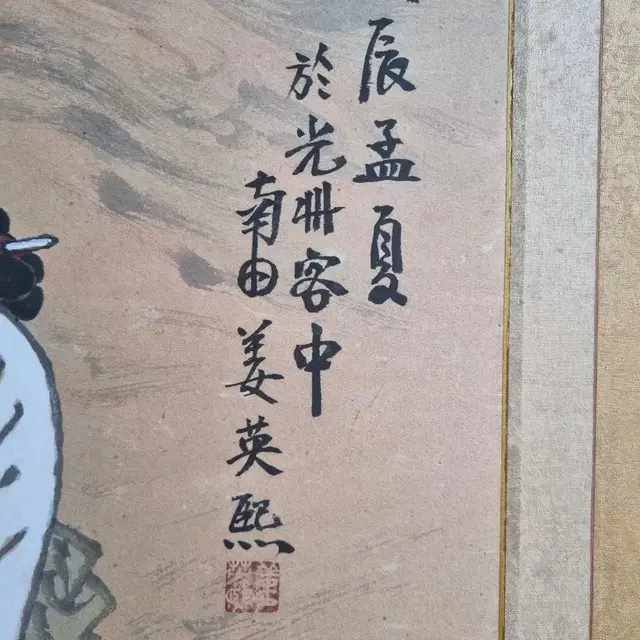 辰孟夏
於光州客中
南田姜英熙